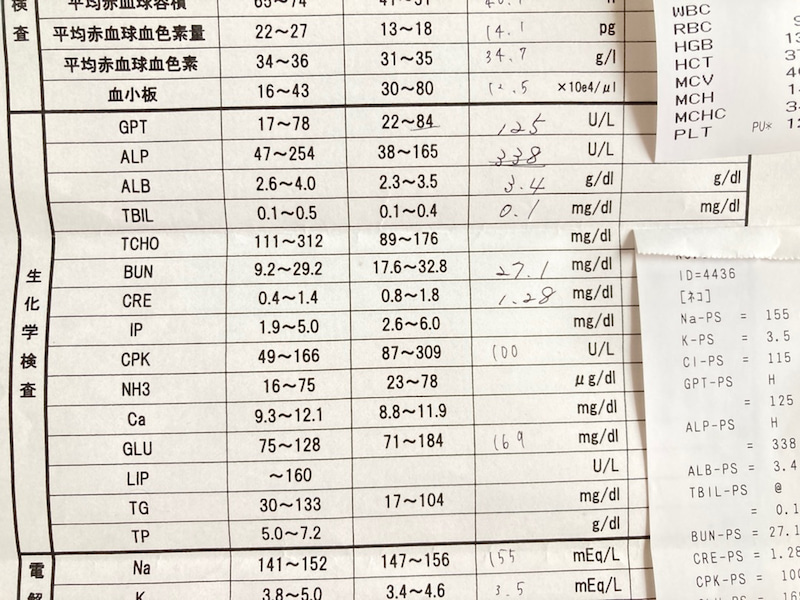 検 平均赤血球容積 65~74 41~51
査 平均赤血球血色素量 22~27 13~18 14.1 pg
平均赤血球血色素 34~36 31~35 34.7 g/l
血小板 16~43 30~80 12.5 ×10e4/μl
GPT 17~78 22~84 125 U/L
ALP 47~254 38~165 338 U/L
ALB 2.6~4.0 2.3~3.5 3.4 g/dl g/dl
TBIL 0.1~0.5 0.1~0.4 0.1 mg/dl mg/dl
TCHO 111~312 89~176 mg/dl
BUN 9.2~29.2 17.6~32.8 27.1 mg/dl
CRE 0.4~1.4 0.8~1.8 1.28 mg/dl
IP 1.9~5.0 2.6~6.0 mg/dl
CPK 49~166 87~309 100 U/L
NH3 16~75 23~78 μg/dl
Ca 9.3~12.1 8.8~11.9 mg/dl
GLU 75~128 71~184 169 mg/dl
LIP ~160 U/L
TG 30~133 17~104 mg/dl
TP 5.0~7.2 g/dl
生化学検査
電解 Na 141~152 147~156 155 mEq/L
K 3.8~5.0 3.4~4.6 3.5 mEq/L
WBC
RBC
HGB
HCT
MCV
MCH
MCHC
PLT PU*
ID=4436
[ネコ]
Na-PS = 155
K-PS = 3.5
Cl-PS = 115
GPT-PS H
= 125
ALP-PS H
= 338
ALB-PS = 3.4
TBIL-PS @
= 0.1
BUN-PS = 27.1
CRE-PS = 1.28
CPK-PS = 100